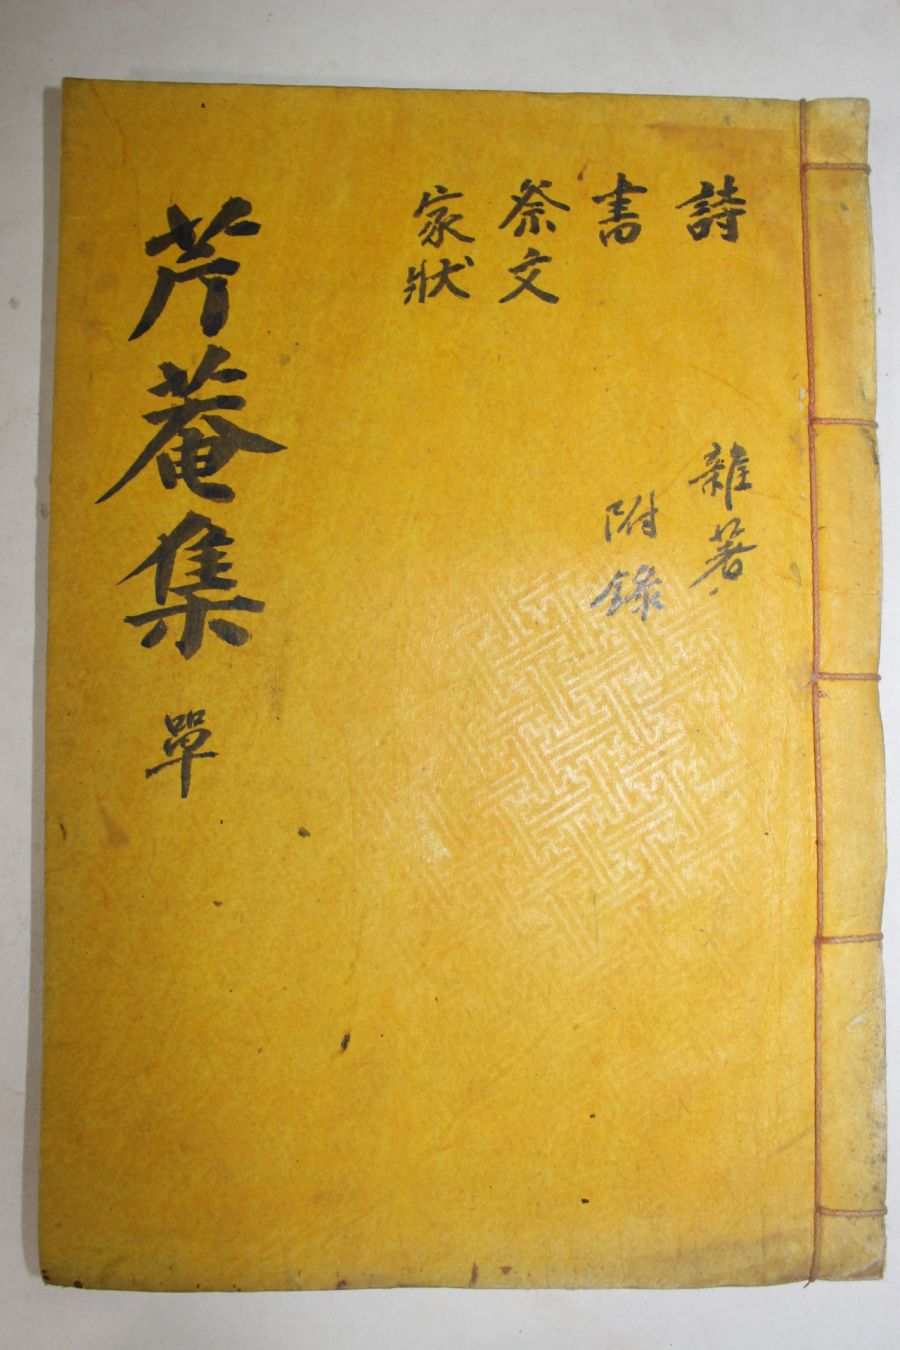 詩
書
祭文
家狀
雜著
附錄
芹菴集 單